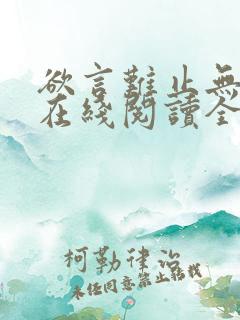 欲言難止無
在綫閱讀全
柯勒律治
未经同意禁止转载